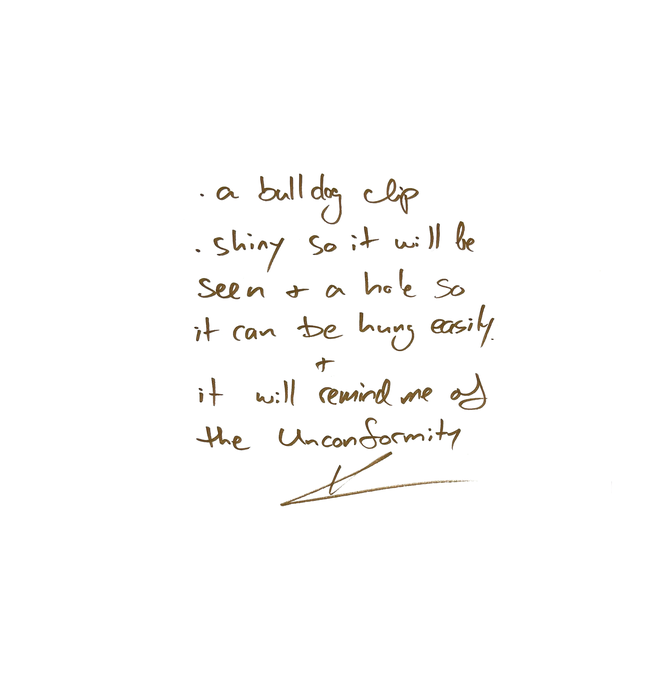 . a bulldog clip
. shiny so it will be
seen + a hole so
it can be hung easily.
+
it will remind me of
the Unconformity